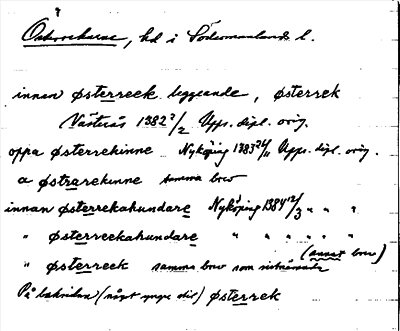 Österrekarne, hd i Södermanlands l.
innan østerreek leggeande, østerek
Västerås 1382 7/2 Upps. dipl. orig.
oppa østerrekinne Nyköping 1383 24/11 Upps. dipl. orig.
a østrarekinne samma brev
innan østerrekahundare Nyköping 1384 12/3 " " "
" østerreekahundare " " " " "
(annat brev)
" østerreek samma brev som sistnämnda
På baksidan (något yngre stil) østerrek